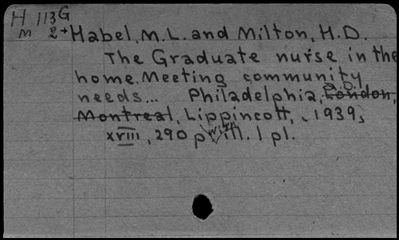 H 113G
m 2+ Habel, M.L. and Milton, H.D.
The Graduate nurse in the
home. Meeting community
needs... Philadelphia, London,
Montreal, Lippincott, 1939,
xviii, 290 p. with ill. 1 pl.